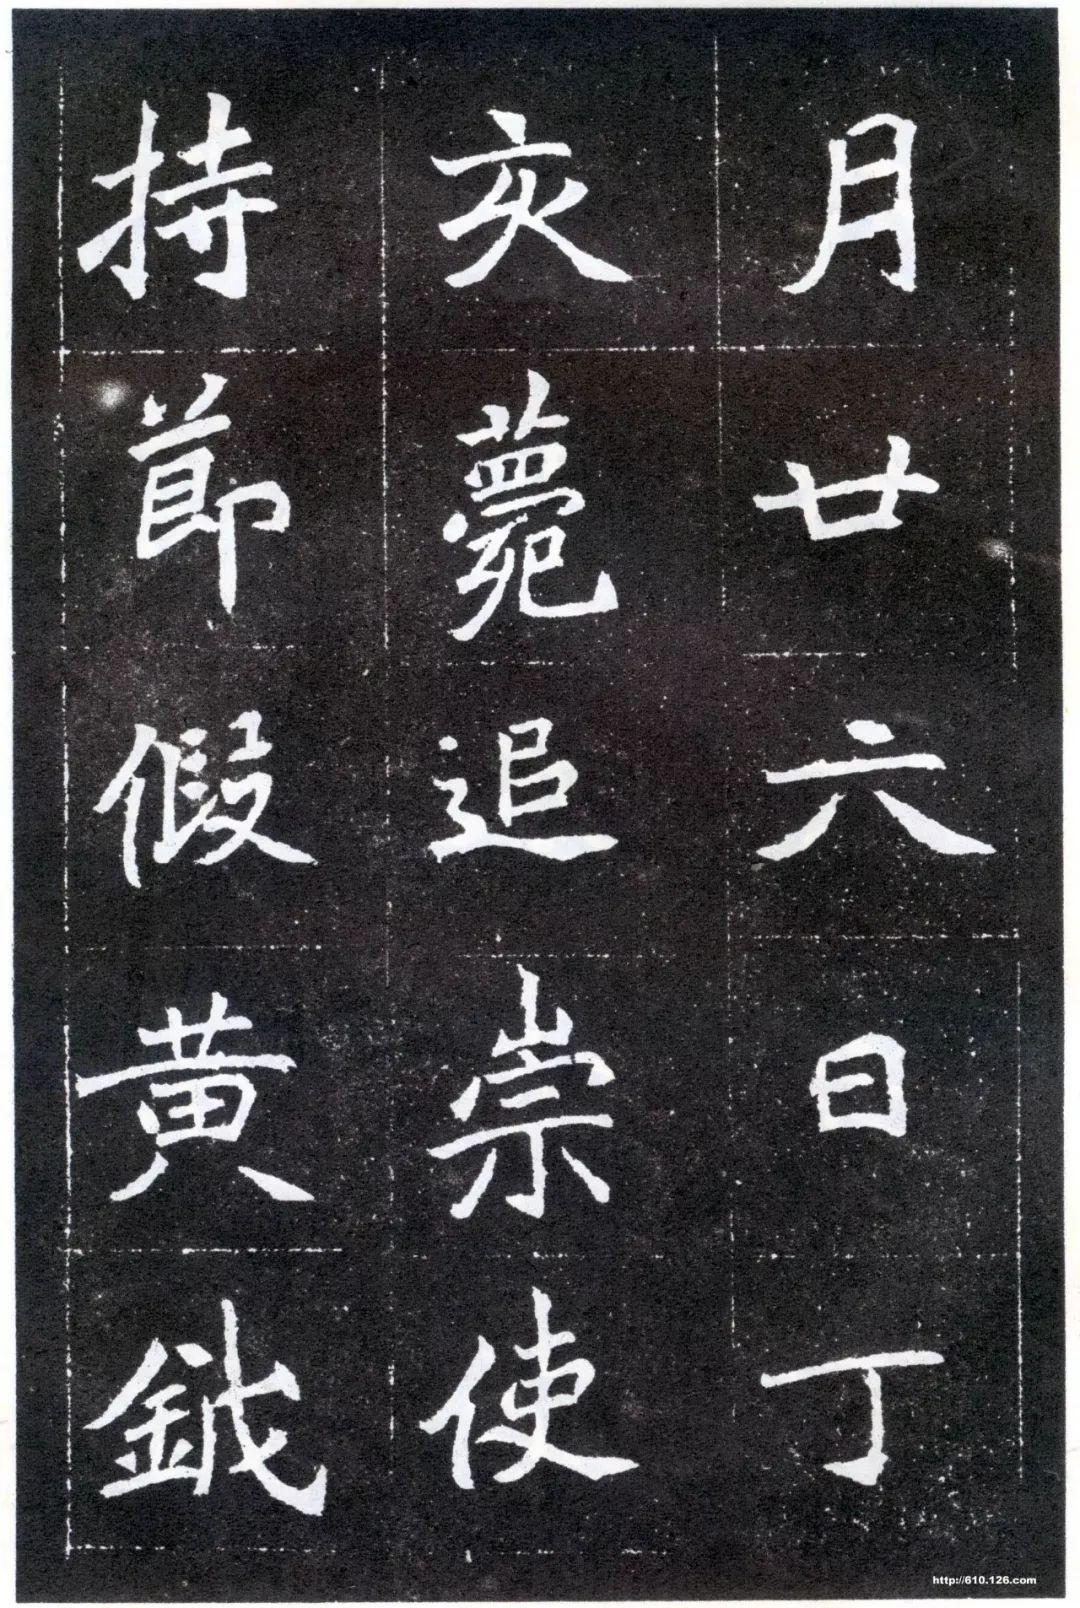 月廿六日丁
亥薨追崇使
持節假黄鉞
http://610.126.com